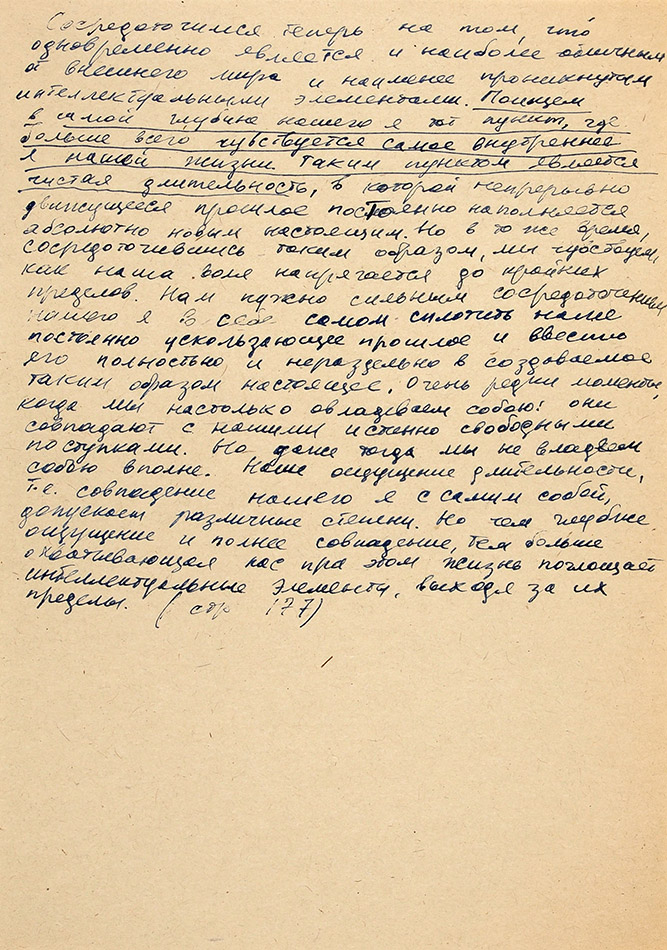 Сосредоточимся теперь на том, что
одновременно является и наиболее отличным
от внешнего мира и наименее проникнутым
интеллектуальными элементами. Поищем
в самой глубине нашего я тот пункт, где
больше всего чувствуется самое внутреннее
я нашей жизни. Таким пунктом является
чистая длительность, в которой непрерывно
движущееся прошлое постоянно наполняется
абсолютно новым настоящим. Но в то же время,
сосредоточившись таким образом, мы чувствуем,
как наша воля напрягается до крайних
пределов. Нам нужно сильным сосредоточением
нашего я в себе самом сплотить наше
постоянно ускользающее прошлое и ввести
его полностью и нераздельно в создаваемое
таким образом настоящее. Очень редки моменты,
когда мы настолько овладеваем собою: они
совпадают с нашими истинно свободными
поступками. Но даже тогда мы не владеем
собою вполне. Наше ощущение длительности,
т.е. совпадение нашего я с самим собой,
допускает различные степени. Но чем глубже
ощущение и полнее совпадение, тем больше
охватывающая нас при этом жизнь поглощает
интеллектуальные элементы, выходя за их
пределы. (стр 177)